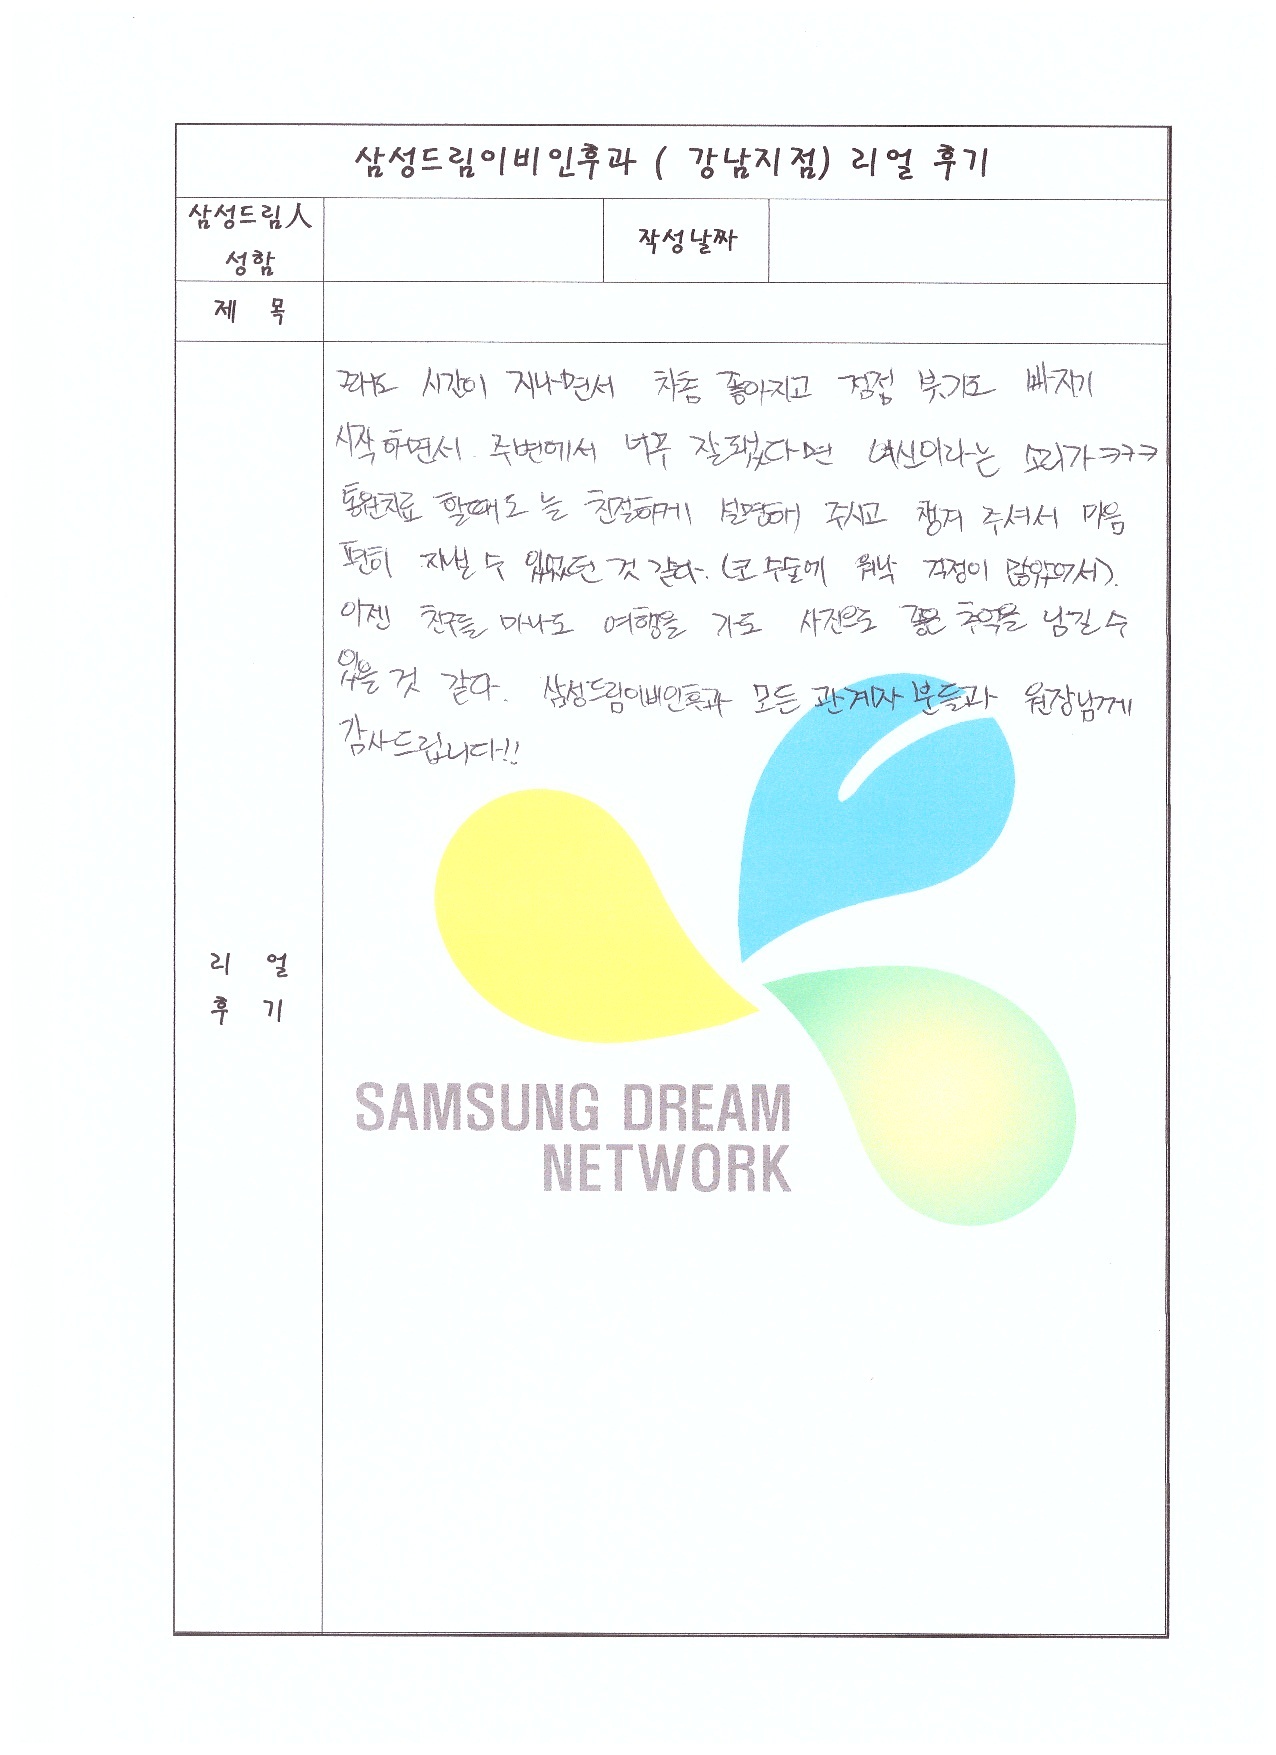 삼성드림이비인후과 ( 강남지점) 리얼 후기
삼성드림人
성함
작성날짜
제 목
시간이 지나면서 차츰 좋아지고 점점 붓기도 빠지기
시작하면서 주변에서 너무 잘됐다며 여신이라는 소리가ㅋㅋㅋ
통원치료 할때도 늘 친절하게 설명해 주시고 챙겨 주셔서 마음
편히 지낼 수 있었던 것 같다. (코 수술에 워낙 걱정이 많았어서).
이젠 친구들 만나도 여행을 가도 사진으로 좋은 추억을 남길 수
있을 것 같다. 삼성드림이비인후과 모든 관계자 분들과 원장님께
감사드립니다!!
리 얼
후 기
SAMSUNG DREAM
NETWORK